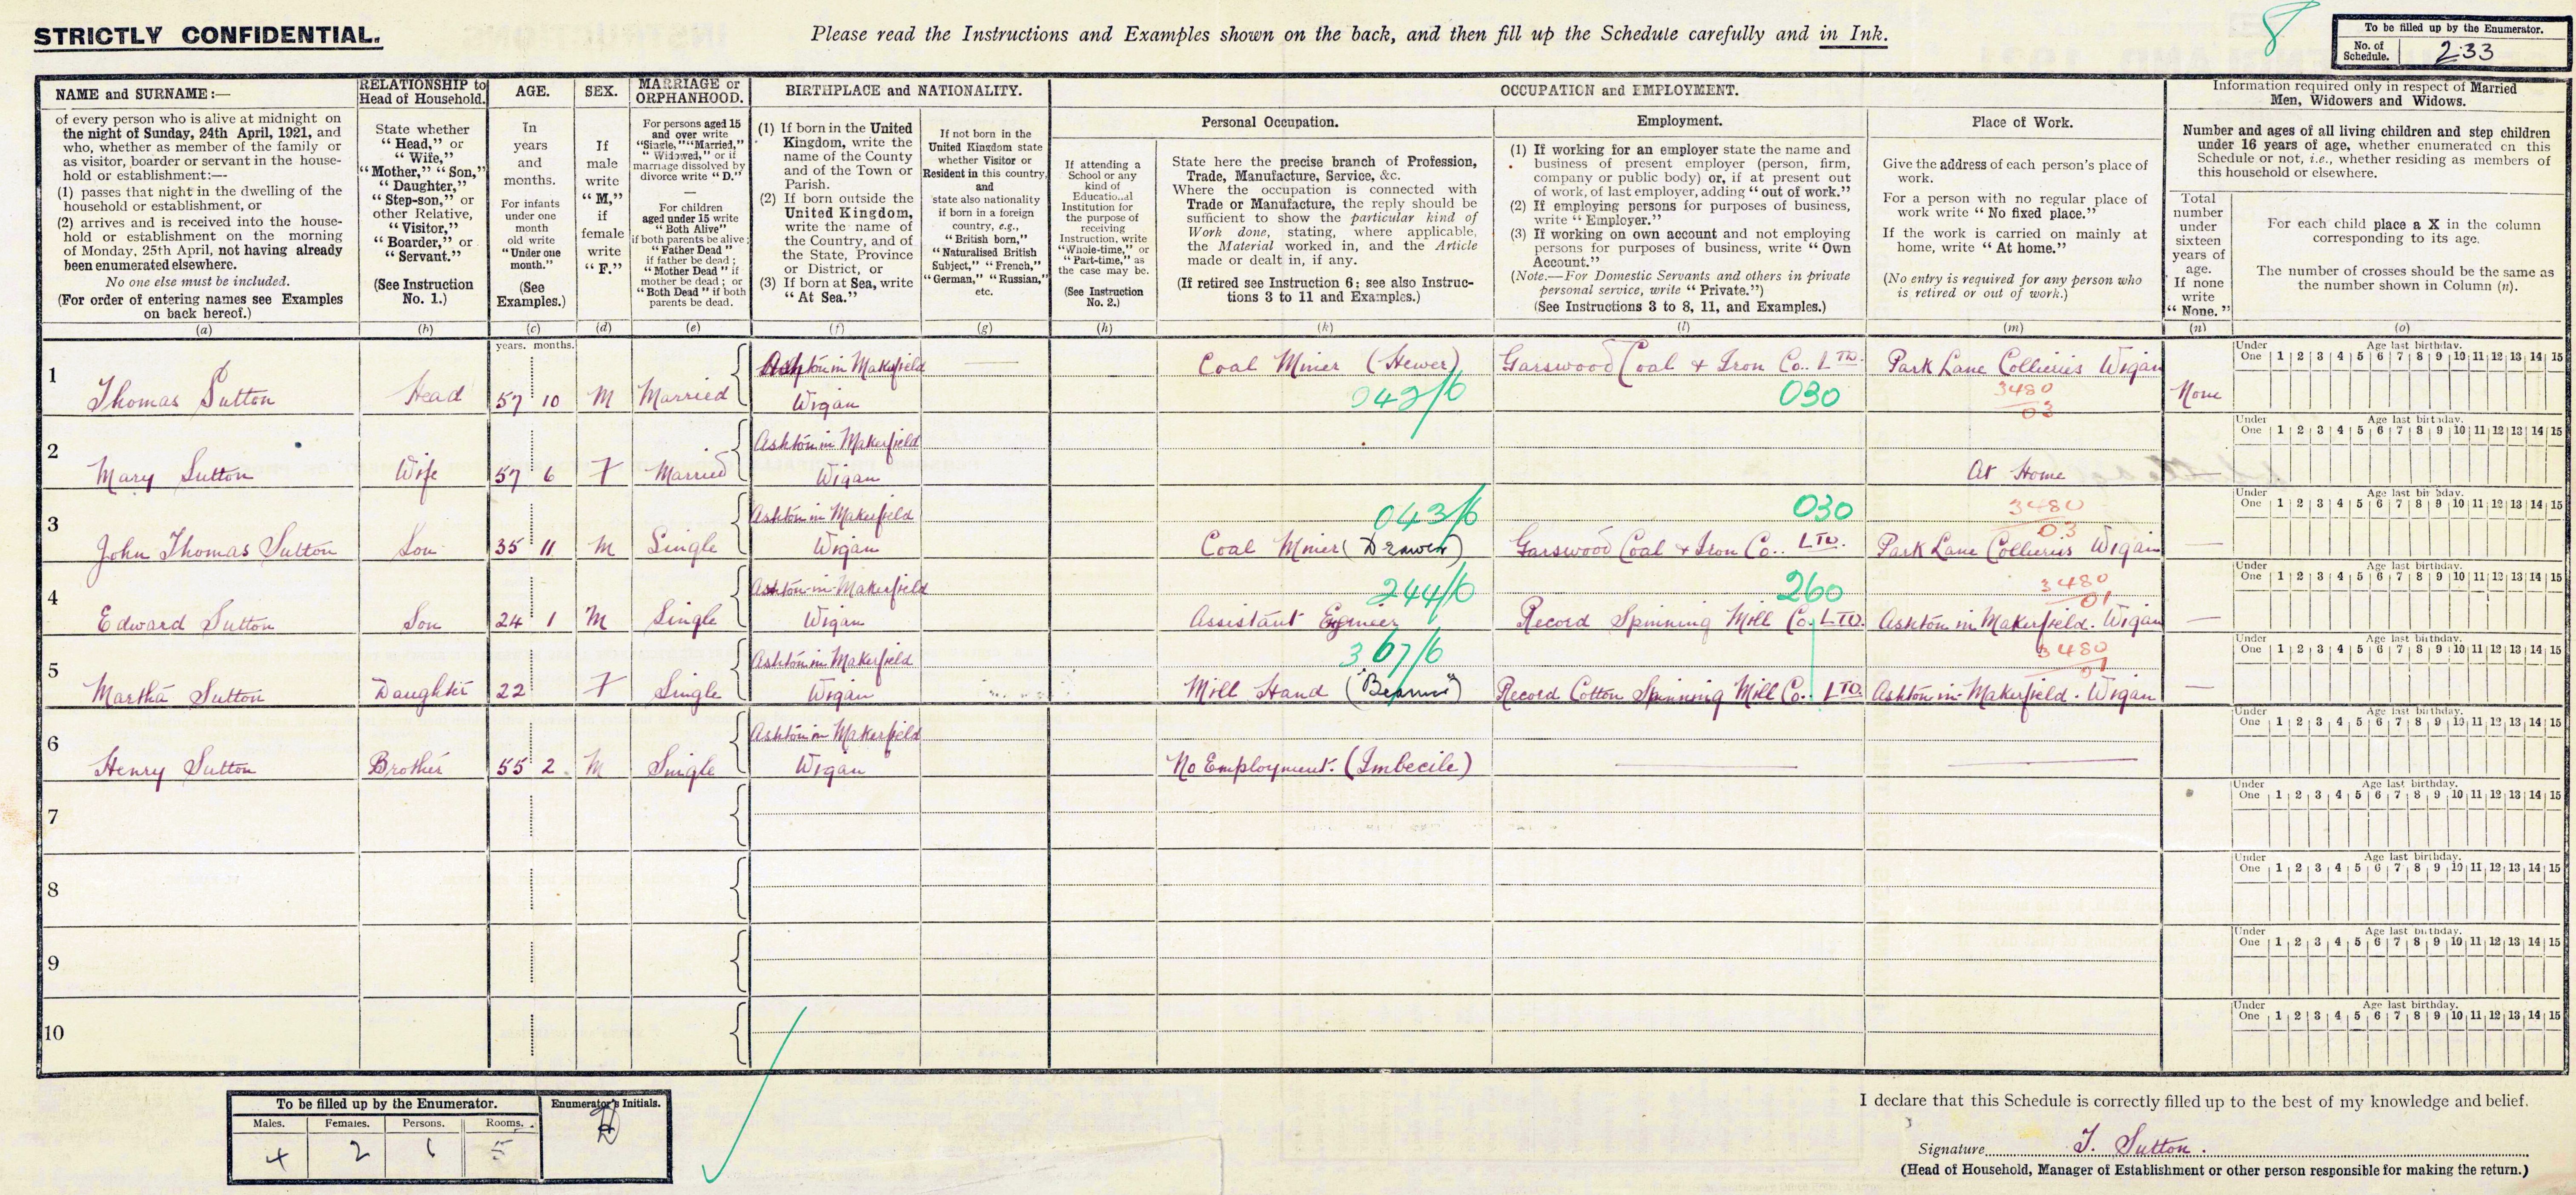 STRICTLY CONFIDENTIAL.
Please read the Instructions and Examples shown on the back, and then fill up the Schedule carefully and in Ink.
8
To be filled up by the Enumerator.
No. of Schedule. 233
NAME and SURNAME:—
of every person who is alive at midnight on
the night of Sunday, 24th April, 1921, and
who, whether as member of the family or
as visitor, boarder or servant in the house-
hold or establishment:—
(1) passes that night in the dwelling of the
household or establishment, or
(2) arrives and is received into the house-
hold or establishment on the morning
of Monday, 25th April, not having already
been enumerated elsewhere.
No one else must be included.
(For order of entering names see Examples
on back hereof.)
(a)
RELATIONSHIP to
Head of Household.
State whether
"Head," or
"Wife,"
"Mother," "Son,"
"Daughter,"
"Step-son," or
other Relative,
"Visitor,"
"Boarder," or
"Servant."
(See Instruction
No. 1.)
(b)
AGE.
In
years
and
months.
For infants
under one
month
old write
"Under one
month."
(See
Examples.)
(c)
SEX.
If
male
write
"M,"
if
female
write
"F."
(d)
MARRIAGE or
ORPHANHOOD.
For persons aged 15
and over write
"Single," "Married,"
"Widowed," or if
marriage dissolved by
divorce write "D."
—
For children
aged under 15 write
"Both Alive"
if both parents be alive;
"Father Dead"
if father be dead;
"Mother Dead" if
mother be dead; or
"Both Dead" if both
parents be dead.
(e)
BIRTHPLACE and NATIONALITY.
(1) If born in the United
Kingdom, write the
name of the County
and of the Town or
Parish.
(2) If born outside the
United Kingdom,
write the name of
the Country, and of
the State, Province
or District, or
(3) If born at Sea, write
"At Sea."
(f)
If not born in the
United Kingdom state
whether Visitor or
Resident in this country,
and
state also nationality
if born in a foreign
country, e.g.,
"British born,"
"Naturalised British
Subject," "French,"
"German," "Russian,"
etc.
(g)
OCCUPATION and EMPLOYMENT.
Personal Occupation.
If attending a
School or any
kind of
Educational
Institution for
the purpose of
receiving
Instruction, write
"Whole-time," or
"Part-time," as
the case may be.
(See Instruction
No. 2.)
(h)
State here the precise branch of Profession,
Trade, Manufacture, Service, &c.
Where the occupation is connected with
Trade or Manufacture, the reply should be
sufficient to show the particular kind of
Work done, stating, where applicable,
the Material worked in, and the Article
made or dealt in, if any.
(If retired see Instruction 6; see also Instruc-
tions 3 to 11 and Examples.)
(k)
Employment.
(1) If working for an employer state the name and
business of present employer (person, firm,
company or public body) or, if at present out
of work, of last employer, adding "out of work."
(2) If employing persons for purposes of business,
write "Employer."
(3) If working on own account and not employing
persons for purposes of business, write "Own
Account."
(Note.—For Domestic Servants and others in private
personal service, write "Private.")
(See Instructions 3 to 8, 11, and Examples.)
(l)
Place of Work.
Give the address of each person's place of
work.
For a person with no regular place of
work write "No fixed place."
If the work is carried on mainly at
home, write "At home."
(No entry is required for any person who
is retired or out of work.)
(m)
Information required only in respect of Married
Men, Widowers and Widows.
Number and ages of all living children and step children
under 16 years of age, whether enumerated on this
Schedule or not, i.e., whether residing as members of
this household or elsewhere.
Total
number
under
sixteen
years of
age.
If none
write
"None."
(n)
For each child place a X in the column
corresponding to its age.
The number of crosses should be the same as
the number shown in Column (n).
(o)
years. months.
Under One Age last birthday. 1 2 3 4 5 6 7 8 9 10 11 12 13 14 15
1 Thomas Sutton Head 57 10 M Married Ashton in Makerfield Wigan — Coal Miner (Hewer) 042/6 Garswood Coal & Iron Co. LTD. 030 Park Lane Collieries Wigan 3480/03 None
Under One Age last birthday. 1 2 3 4 5 6 7 8 9 10 11 12 13 14 15
2 Mary Sutton Wife 57 6 F Married Ashton in Makerfield Wigan At Home —
Under One Age last birthday. 1 2 3 4 5 6 7 8 9 10 11 12 13 14 15
3 John Thomas Sutton Son 35 11 M Single Ashton in Makerfield Wigan 043/6 Coal Miner (Drawer) 030 Garswood Coal & Iron Co. LTD. 3480/03 Park Lane Collieries Wigan —
Under One Age last birthday. 1 2 3 4 5 6 7 8 9 10 11 12 13 14 15
4 Edward Sutton Son 24 1 M Single Ashton-in-Makerfield Wigan 244/6 Assistant Engineer 260 Record Spinning Mill Co. LTD. 3480/01 Ashton in Makerfield. Wigan —
Under One Age last birthday. 1 2 3 4 5 6 7 8 9 10 11 12 13 14 15
5 Martha Sutton Daughter 22 F Single Ashton in Makerfield Wigan 367/6 Mill Hand Record Cotton Spinning Mill Co. LTD. 3480/01 Ashton-in-Makerfield. Wigan —
Under One Age last birthday. 1 2 3 4 5 6 7 8 9 10 11 12 13 14 15
6 Henry Sutton Brother 55 2 M Single Ashton in Makerfield Wigan No Employment. (Imbecile) — —
Under One Age last birthday. 1 2 3 4 5 6 7 8 9 10 11 12 13 14 15
7
Under One Age last birthday. 1 2 3 4 5 6 7 8 9 10 11 12 13 14 15
8
Under One Age last birthday. 1 2 3 4 5 6 7 8 9 10 11 12 13 14 15
9
Under One Age last birthday. 1 2 3 4 5 6 7 8 9 10 11 12 13 14 15
10
To be filled up by the Enumerator.
Males. Females. Persons. Rooms.
4 2 6 5
Enumerator's Initials.
I declare that this Schedule is correctly filled up to the best of my knowledge and belief.
Signature T. Sutton.
(Head of Household, Manager of Establishment or other person responsible for making the return.)